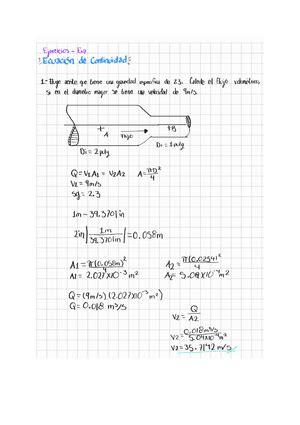 Ejercicios - Eq
Ecuación de Continuidad
1- Fluye aceite que tiene una gravedad específica de 2.3. Calcule el flujo volumétrico,
si en el diámetro mayor se tiene una velocidad de 9m/s.
A
Flujo
B
Di = 2 pulg
Di = 1 pulg
Q = V1 A1 = V2 A2 A = πD²/4
V1 = 9m/s
sg = 2.3
1m - 39.3701 in
2in | 1m / 39.3701in | = 0.058m
A1 = π(0.058m)²/4
A1 = 2.027x10⁻³ m²
A2 = π(0.0254)²/4
Q = (9m/s)(2.027x10⁻³ m²)
Q = 0.018 m³/s
V2 = Q/A2
V2 = 0.018m³/s / 5.04x10⁻⁴ m²
V2 = 35.7142 m/s